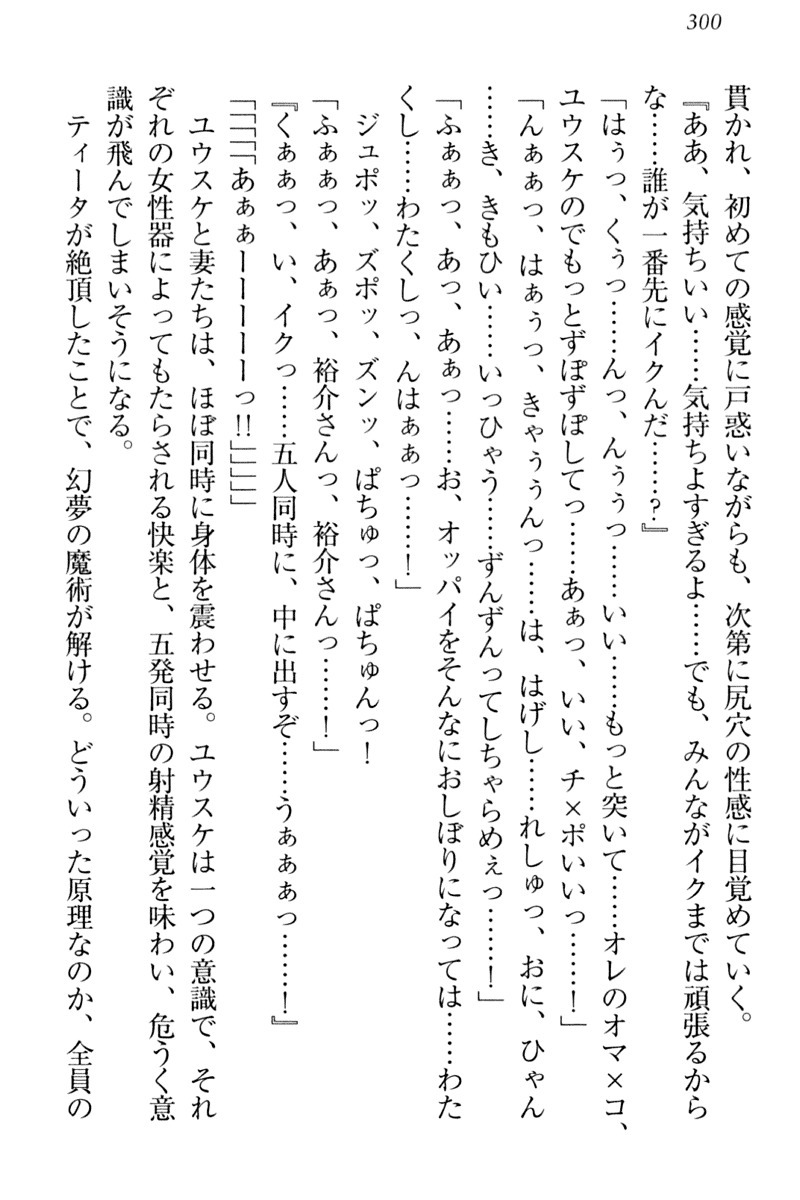 300
貫かれ、初めての感覚に戸惑いながらも、次第に尻穴の性感に目覚めていく。
『ああ、気持ちいい……気持ちよすぎるよ……でも、みんながイクまでは頑張るから
な……誰が一番先にイクんだ……？』
「はぅっ、くぅっ……んっ、んぅぅっ……いい……もっと突いて……オレのオマ×コ、
ユウスケのでもっとずぽずぽしてっ……あぁっ、いい、チ×ポいいっ……！」
「んぁぁっ、はぁぅっ、きゃぅぅんっ……は、はげし……れしゅっ、おに、ひゃん
……き、きもひい……いっひゃう……ずんずんってしちゃらめぇっ……！」
「ふぁぁっ、あっ、あぁっ……お、オッパイをそんなにおしぼりになっては……わた
くし……わたくしっ、んはぁぁっ……！」
ジュポッ、ズポッ、ズンッ、ぱちゅっ、ぱちゅんっ！
「ふぁぁっ、あぁっ、裕介さんっ、裕介さんっ……！」
『くぁぁっ、い、イクっ……五人同時に、中に出すぞ……うぁぁぁっ……！』
「「「「あぁぁーーーーーっ!!」」」」
ユウスケと妻たちは、ほぼ同時に身体を震わせる。ユウスケは一つの意識で、それ
ぞれの女性器によってもたらされる快楽と、五発同時の射精感覚を味わい、危うく意
識が飛んでしまいそうになる。
ティータが絶頂したことで、幻夢の魔術が解ける。どういった原理なのか、全員の